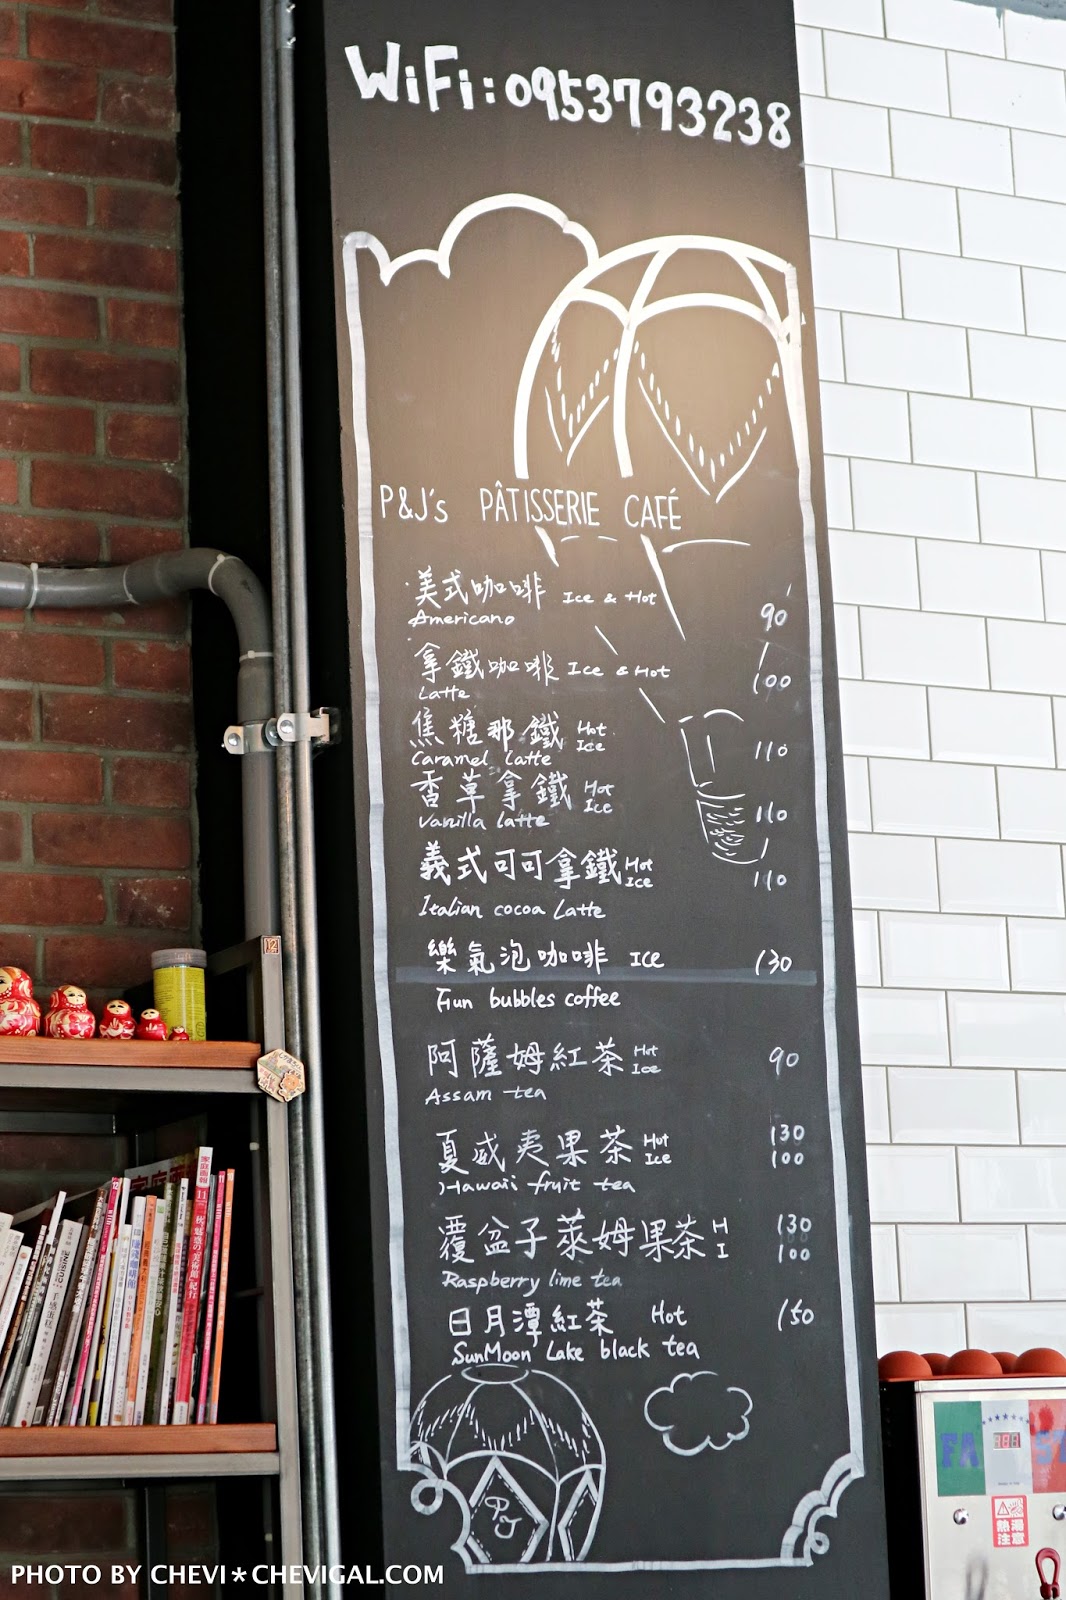 WiFi:0953793238
P&J's PÂTISSERIE CAFÉ
美式咖啡 Ice & Hot 90
Americano
拿鐵咖啡 Ice & Hot 100
Latte
焦糖那鐵 Hot Ice 110
Caramel Latte
香草拿鐵 Hot Ice 110
Vanilla latte
義式可可拿鐵 Hot Ice 110
Italian cocoa Latte
樂氣泡咖啡 Ice 130
Fun bubbles coffee
阿薩姆紅茶 Hot Ice 90
Assam tea
夏威夷果茶 Hot 130
Ice 100
Hawaii fruit tea
覆盆子萊姆果茶 H 130
I 100
Raspberry lime tea
日月潭紅茶 Hot 150
SunMoon Lake black tea
P&J
家庭画報
11
秋、魅惑の美術館紀行
12
FA
ST
熱湯
注意
PHOTO BY CHEVI★CHEVIGAL.COM